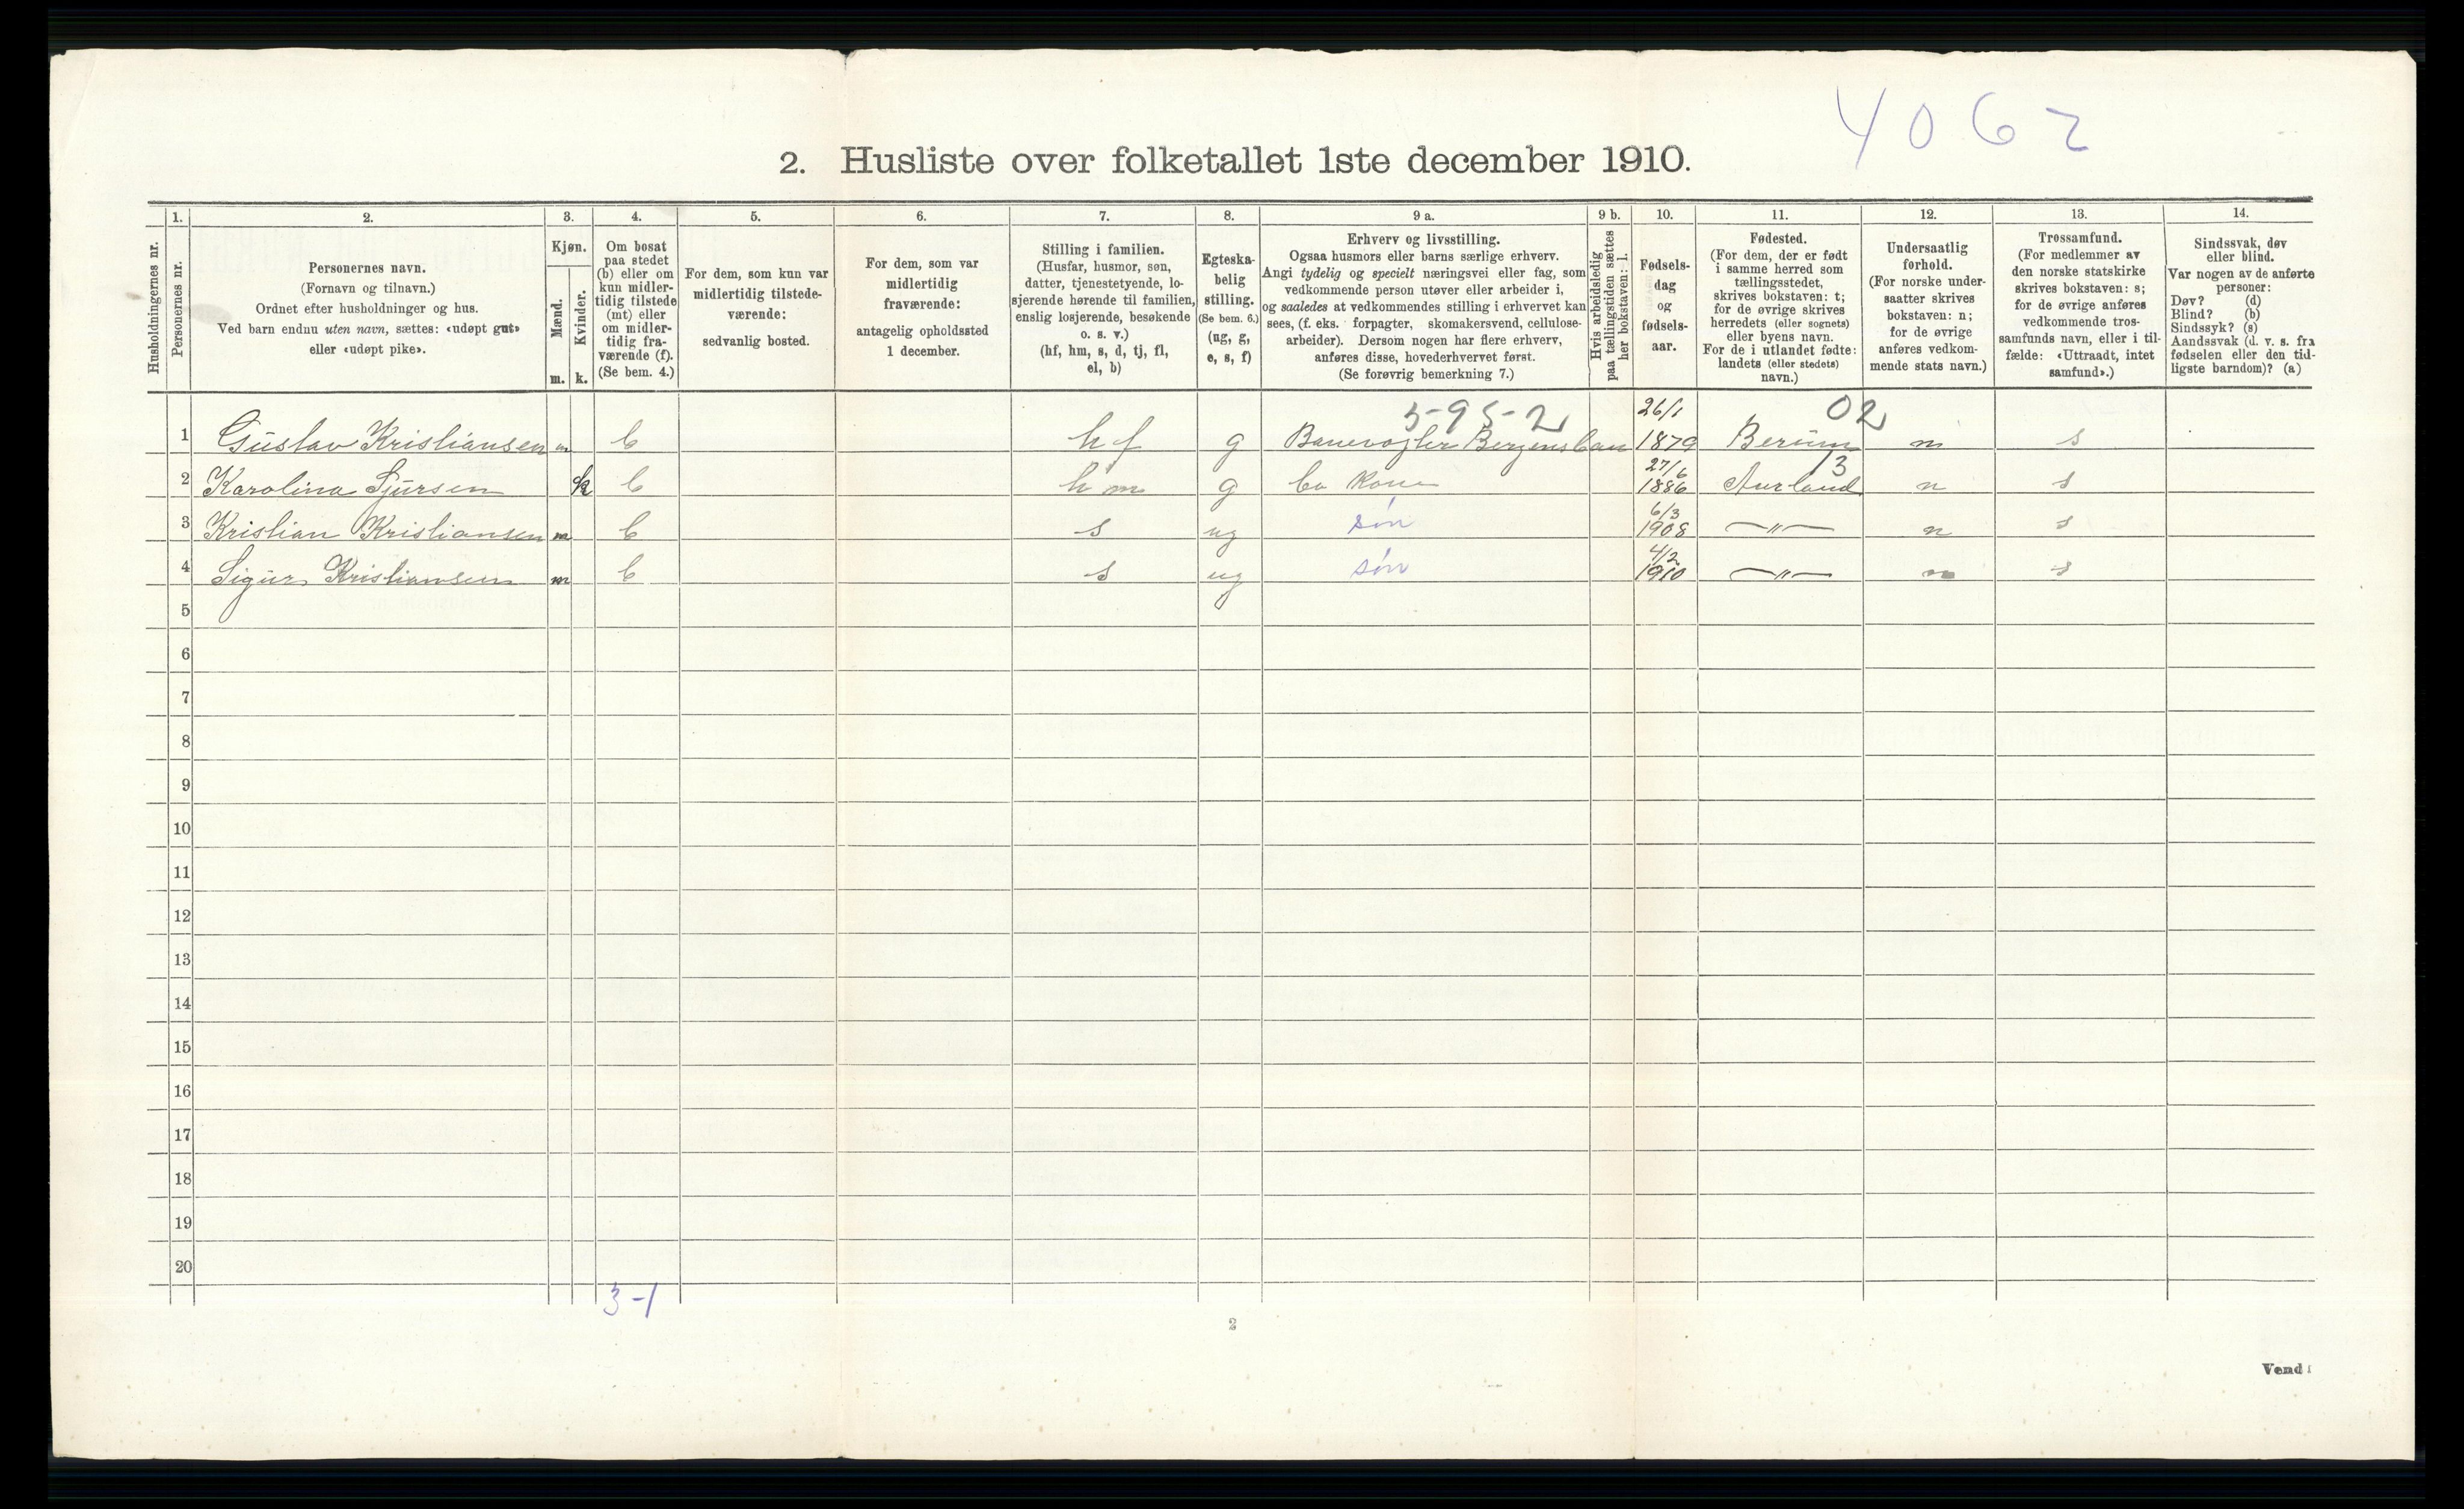 4062
2. Husliste over folketallet 1ste december 1910.
Husholdningernes nr.
1.
Personernes nr.
2.
Personernes navn.
(Fornavn og tilnavn.)
Ordnet efter husholdninger og hus.
Ved barn endnu uten navn, sættes: «udøpt gut»
eller «udøpt pike».
3.
Kjøn.
Mænd.
m.
Kvinder.
k.
4.
Om bosat
paa stedet
(b) eller om
kun midler-
tidig tilstede
(mt) eller
om midler-
tidig fra-
værende (f).
(Se bem. 4.)
5.
For dem, som kun var
midlertidig tilstede-
værende:
sedvanlig bosted.
6.
For dem, som var
midlertidig
fraværende:
antagelig opholdssted
1 december.
7.
Stilling i familien.
(Husfar, husmor, søn,
datter, tjenestetyende, lo-
sjerende hørende til familien,
enslig losjerende, besøkende
o. s. v.)
(hf, hm, s, d, tj, fl,
el, b)
8.
Egteska-
belig
stilling.
(Se bem. 6.)
(ug, g,
e, s, f)
9 a.
Erhverv og livsstilling.
Ogsaa husmors eller barns særlige erhverv.
Angi tydelig og specielt næringsvei eller fag, som
vedkommende person utøver eller arbeider i,
og saaledes at vedkommendes stilling i erhvervet kan
sees, (f. eks. forpagter, skomakersvend, cellulose-
arbeider). Dersom nogen har flere erhverv,
anføres disse, hovederhvervet først.
(Se forøvrig bemerkning 7.)
9 b.
Hvis arbeidsledig
paa tællingstiden sættes
her bokstaven: l.
10.
Fødsels-
dag
og
fødsels-
aar.
11.
Fødested.
(For dem, der er født
i samme herred som
tællingsstedet,
skrives bokstaven: t;
for de øvrige skrives
herredets (eller sognets)
eller byens navn.
For de i utlandet fødte:
landets (eller stedets)
navn.)
12.
Undersaatlig
forhold.
(For norske under-
saatter skrives
bokstaven: n;
for de øvrige
anføres vedkom-
mende stats navn.)
13.
Trossamfund.
(For medlemmer av
den norske statskirke
skrives bokstaven: s;
for de øvrige anføres
vedkommende tros-
samfunds navn, eller i til-
fælde: «Uttraadt, intet
samfund».)
14.
Sindssvak, døv
eller blind.
Var nogen av de anførte
personer:
Døv? (d)
Blind? (b)
Sindssyk? (s)
Aandssvak (d. v. s. fra
fødselen eller den tid-
ligste barndom)? (a)
5-95-2 26/1 02
1 Gustav Kristiansen m b hf g Banevogter Bergensban 1879 Berum n s
27/6 13
2 Karolina Sjursen k b hm g Kone 1886 Aurland n s
6/3
3 Kristian Kristiansen m b s ug søn 1908 —"— n s
4/2
4 Sigur Kristiansen m b s ug søn 1910 —"— n s
5
6
7
8
9
10
11
12
13
14
15
16
17
18
19
20
3-1
2
Vend